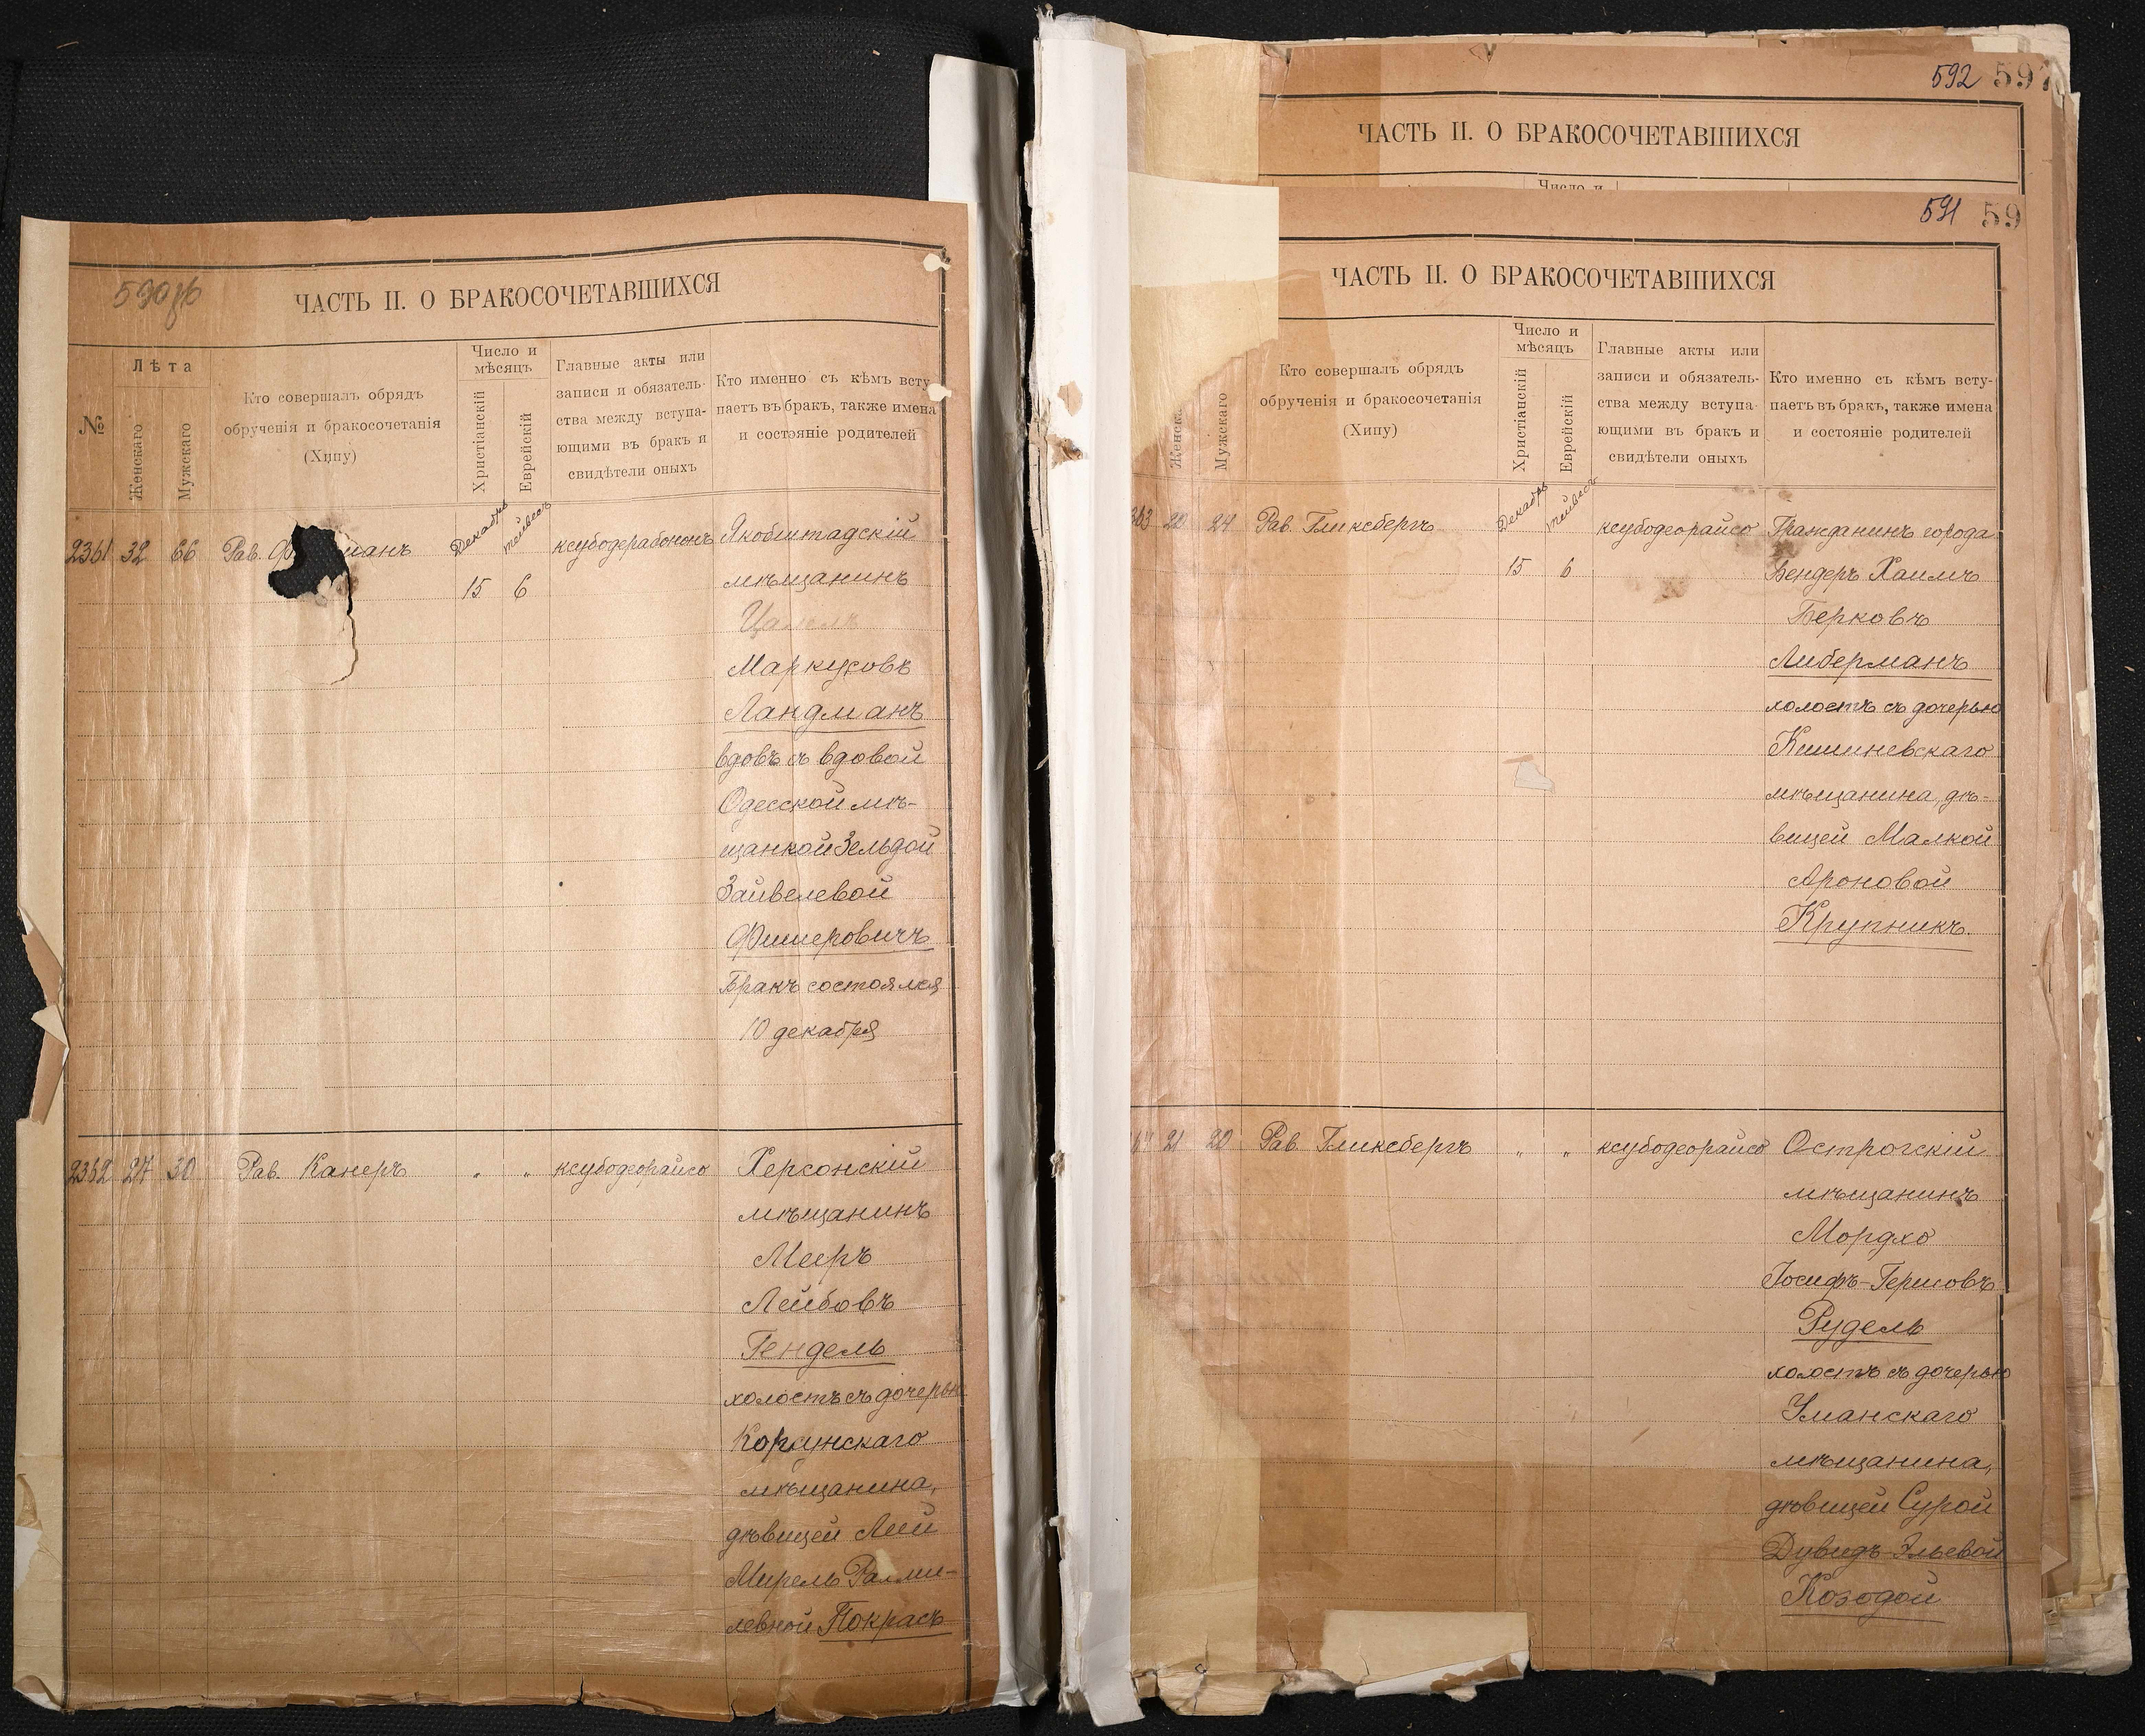 590 об
ЧАСТЬ II. О БРАКОСОЧЕТАВШИХСЯ
№
Лѣта
Женскаго
Мужскаго
Кто совершалъ обрядъ
обрученія и бракосочетанія
(Хипу)
Число и
мѣсяцъ
Христіанскій
Еврейскій
Главные акты или
записи и обязатель-
ства между вступа-
ющими въ бракъ и
свидѣтели оныхъ
Кто именно съ кѣмъ всту
паетъ въ бракъ, также имена
и состояніе родителей
2361 32 66 Рав. манъ Декабрь тейвесъ ксубодерабононъ Якобштадскій
15 6 мѣщанинъ
Маркусовъ
Ландманъ
вдовъ съ вдовой
Одесской мѣ-
щанкой Зельдой
Зайвелевой
Фишеровичъ
Бракъ состоялся
10 декабря
2362 27 30 Рав. Канеръ " " ксубодеорайсо Херсонскій
мѣщанинъ
Мееръ
Лейбовъ
Гендель
холостъ съ дочерью
Корсунскаго
мѣщанина,
дѣвицей Леей
Мирель
левной Покрасъ
592 597
ЧАСТЬ II. О БРАКОСОЧЕТАВШИХСЯ
Число и
591 59
ЧАСТЬ II. О БРАКОСОЧЕТАВШИХСЯ
Женска
Мужскаго
Кто совершалъ обрядъ
обрученія и бракосочетанія
(Хипу)
Число и
мѣсяцъ
Христіанскій
Еврейскій
Главные акты или
записи и обязатель-
ства между вступа-
ющими въ бракъ и
свидѣтели оныхъ
Кто именно съ кѣмъ всту-
паетъ въ бракъ, также имена
и состояніе родителей
363 20 24 Рав. Гликсбергъ Декабрь тейвесъ ксубодеорайсо Гражданинъ города
15 6 Бендеръ Хаимъ
Берковъ
Либерманъ
холостъ съ дочерью
Кишиневскаго
мѣщанина, дѣ-
вицей Малкой
Ароновой
Крупникъ
64 21 20 Рав. Гликсбергъ " " ксубодеорайсо Острогскій
мѣщанинъ
Мордхо
Іосифъ-Гершовъ
Рудель
холостъ съ дочерью
Уманскаго
мѣщанина,
дѣвицей Сурой
Дувидъ-Эльевой
Козодой